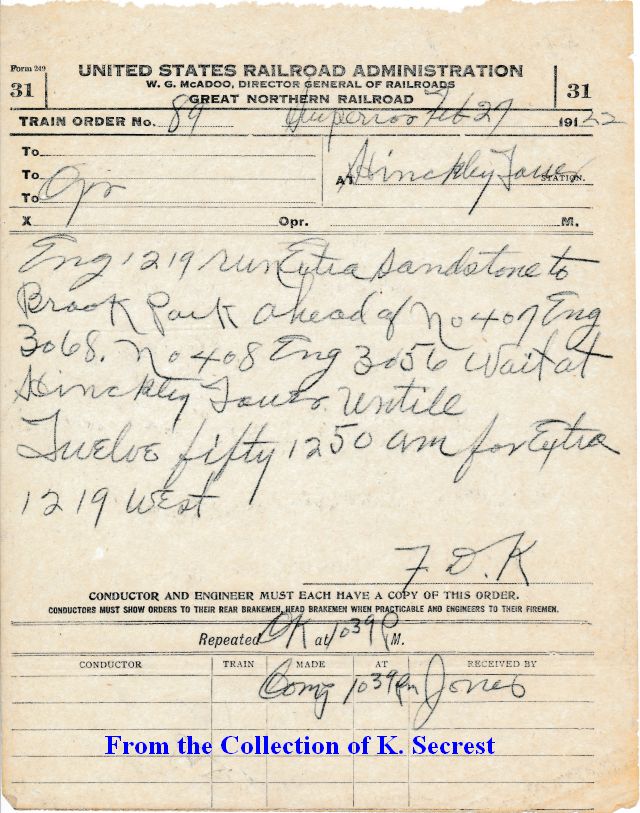 Form 249
31
UNITED STATES RAILROAD ADMINISTRATION
W. G. McADOO, DIRECTOR GENERAL OF RAILROADS
GREAT NORTHERN RAILROAD
31
TRAIN ORDER No. 89 Superior Feb 27 191 22
To
To
To Opr
AT Hinckley Tower STATION.
X Opr. M.
Eng 1219 run Extra Sandstone to
Brook Park ahead of No 407 Eng
3068. No 408 Eng 3056 Wait at
Hinckley Tower Untile
Twelve fifty 1250 am for Extra
1219 West
F. D. K
CONDUCTOR AND ENGINEER MUST EACH HAVE A COPY OF THIS ORDER.
CONDUCTORS MUST SHOW ORDERS TO THEIR REAR BRAKEMEN, HEAD BRAKEMEN WHEN PRACTICABLE AND ENGINEERS TO THEIR FIREMEN.
Repeated OK at 1039 P M.
CONDUCTOR TRAIN MADE AT RECEIVED BY
Comp 1039 Pm Jones
From the Collection of K. Secrest